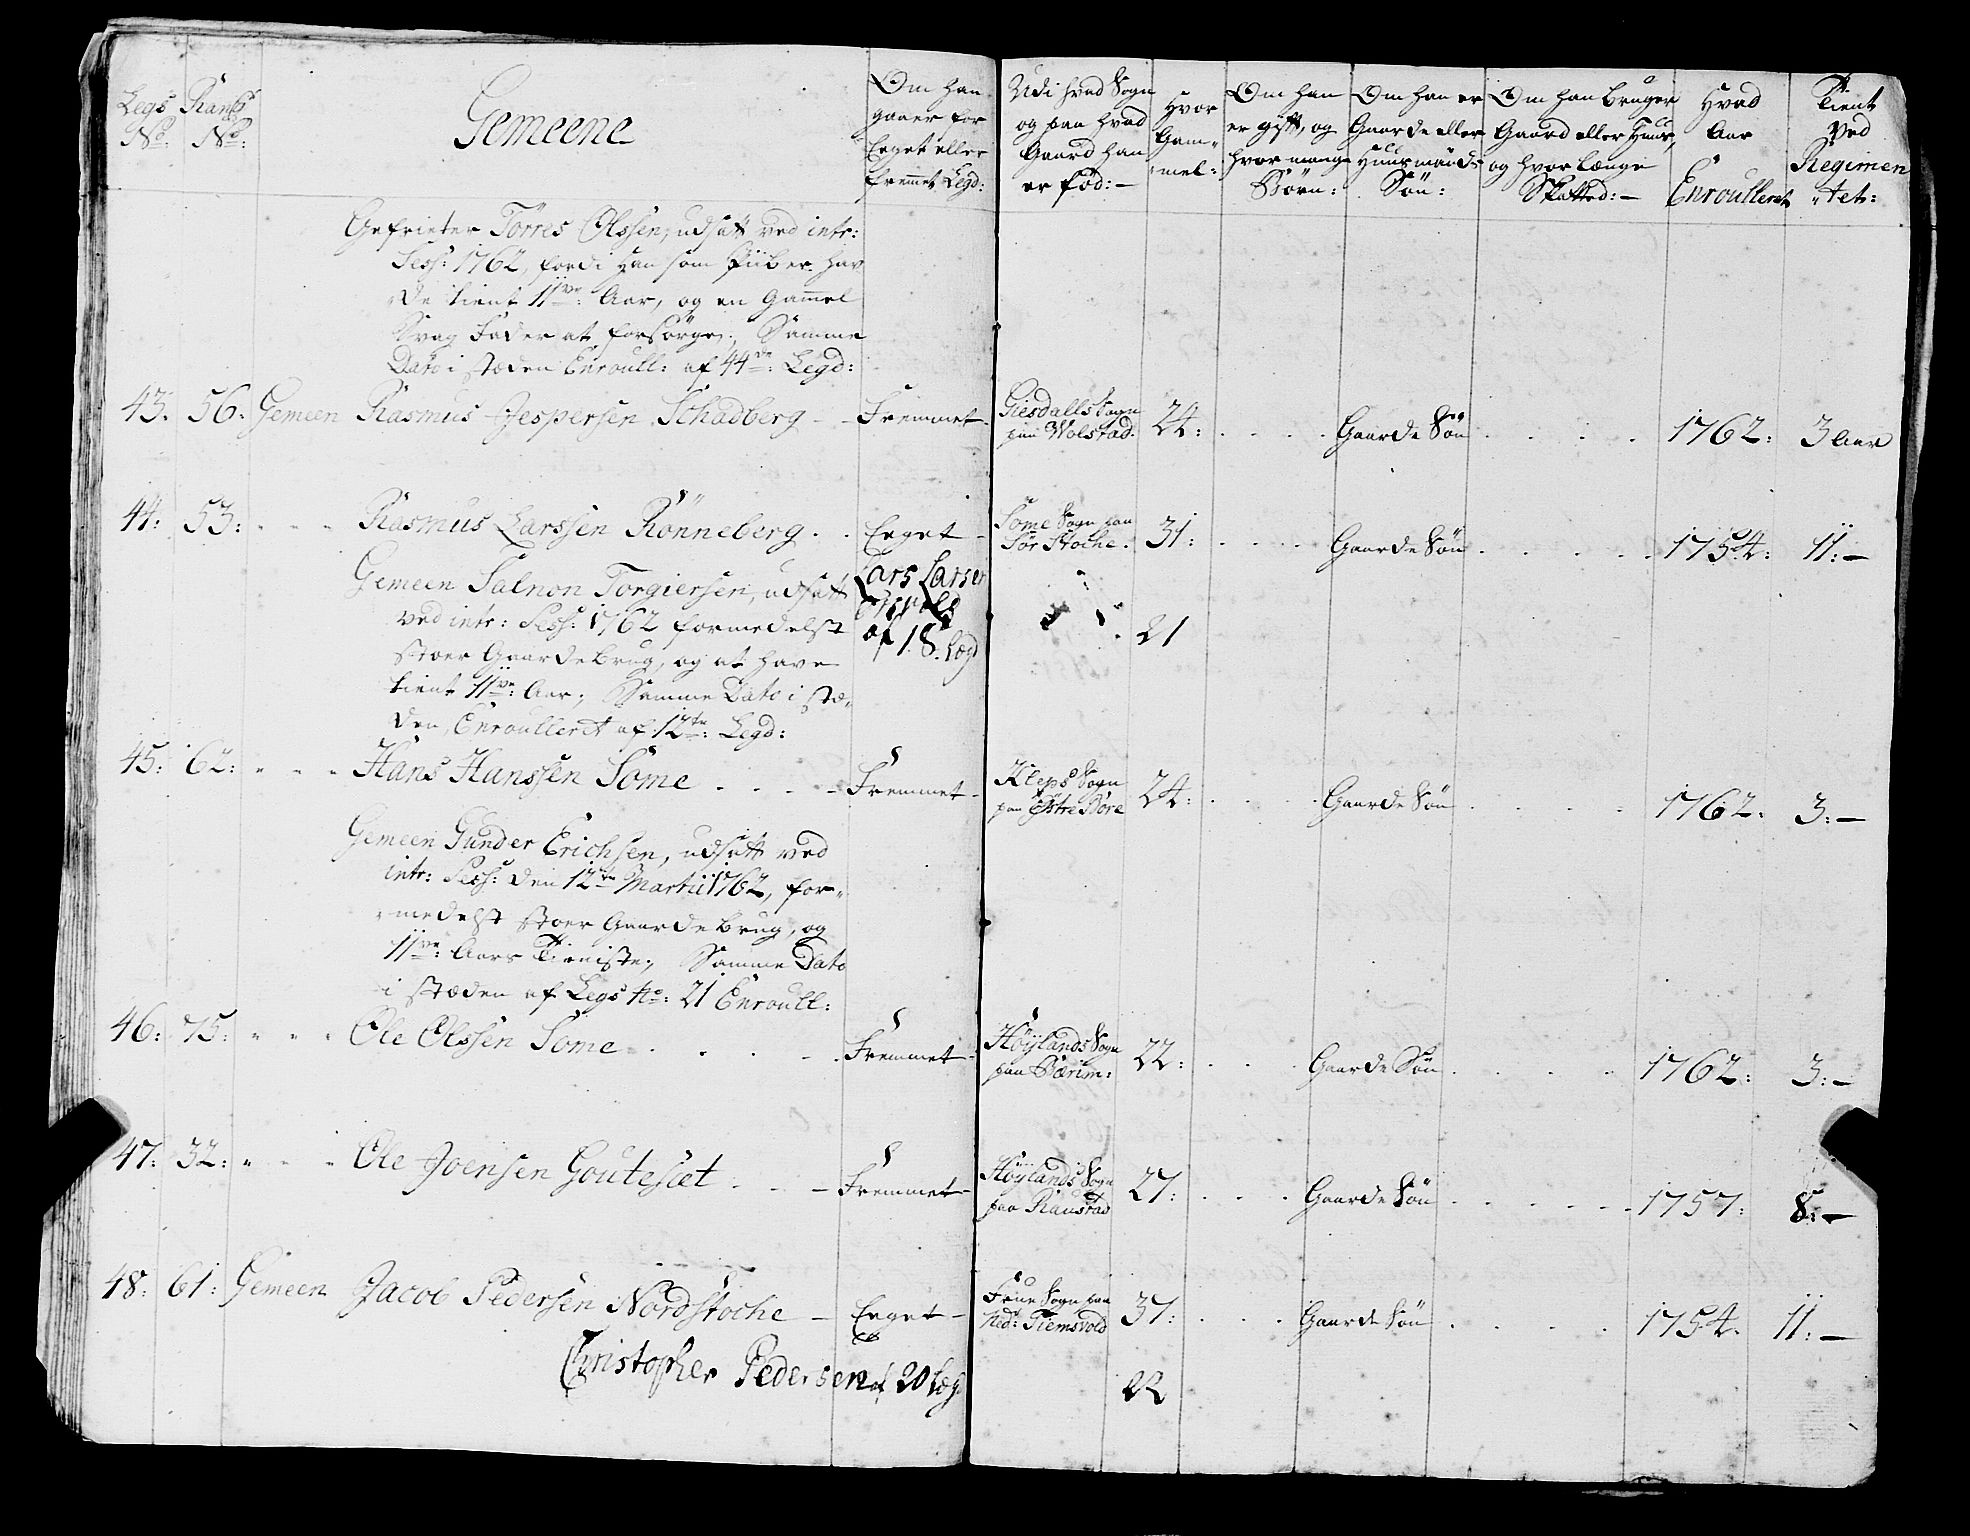 Legs Rangs
No: No:
Gemeene
Om han
gaaer for
Eeget eller
fremet Legd:
Udi hvad Sogn
og paa hvad
Gaard han
er fød:—
Hvor
Gam-
mel:
Om han
er gift, og
hvor mange
Børn:
Om han er
Gaarde eller
Huusmands
Søn:
Om han bruger
Gaard eller Huus,
og hvor længe
Skatted:—
Hvad
Aar
Enroulleret
Tient
Ved
Regimen
tet:
Gefrieter Törres Olssen, udsatt ved intr:
Sess: 1762, fordi han som Piiber hav
de tient 11ve: Aar, og en Gamel
Svag Fader at forsørge; Samme
Dato i stæden Enroull: af 44de: Legd:
43. 56. Gemeen Rasmus Jespersen Schadberg — Fremmet. Giesdalls Sogn paa Wolstad. 24: Gaarde Søn 1762: 3 Aar
44: 53: Rasmus Larssen Rönneberg . . Eeget — Some Sogn paa Sör Stoche. 31: Gaarde Søn 1754: 11:—
Gemeen Salmon Torgiersen, udsatt
ved intr: Sess: 1762 formedelst
stoer Gaardebrug, og at have
tient 11ve: Aar; Samme Dato i stæ-
den, Enroulleret af 12te: Legd:
Lars Larsen
af 18. Lægd
21
45: 62: Hans Hanssen Some Fremmet — Kleps Sogn paa Østre Bore 24: Gaarde Søn 1762. 3:—
Gemeen Gunder Erichsen, udsatt ved
intr: Sess: den 12te Martii 1762, for-
medelst stoer Gaardebrug, og
11ve: Aars Tieniste; Samme Dato
i stæden af Legs No: 21 Enroull:
46: 75: Ole Olssen Some Fremmet — Höylands Sogn paa Bærim: 22: Gaarde Søn 1762: 3:—
47: 32: Ole Joensen Goutesæt Fremmet — Höylands Sogn paa Raustad 27: Gaarde Søn 1757: 8:—
48: 61: Gemeen Jacob Pedersen Nordstoche — Eeget — Frue Sogn paa Ned: Tiemsvold 37: Gaarde Søn 1754. 11:—
Christopher Pedersen af 20 Læg 22